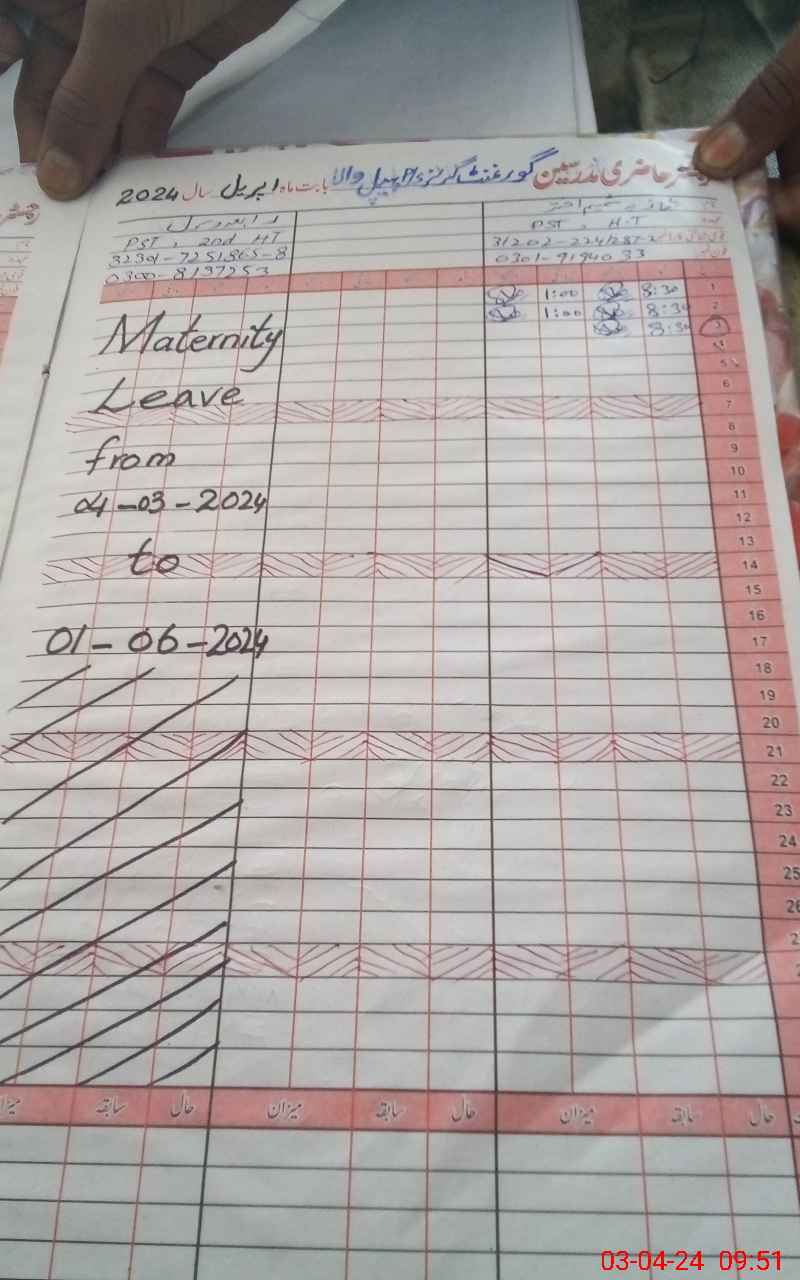 رجسٹر حاضری مدرسین گورنمنٹ گرلز پیپل والا بابت ماہ اپریل سال 2024
PST , H.T
PST , 2nd HT
0301-9194033
0300-8137253
1:00 8:30 1
1:00 8:30 2
8:30 3
Maternity
4
5
6
Leave
7
8
from
9
10
04-03-2024
11
12
13
to
14
15
16
01-06-2024
17
18
19
20
21
22
23
24
25
26
میزان سابقہ حال میزان سابقہ حال میزان سابقہ حال
03-04-24 09:51